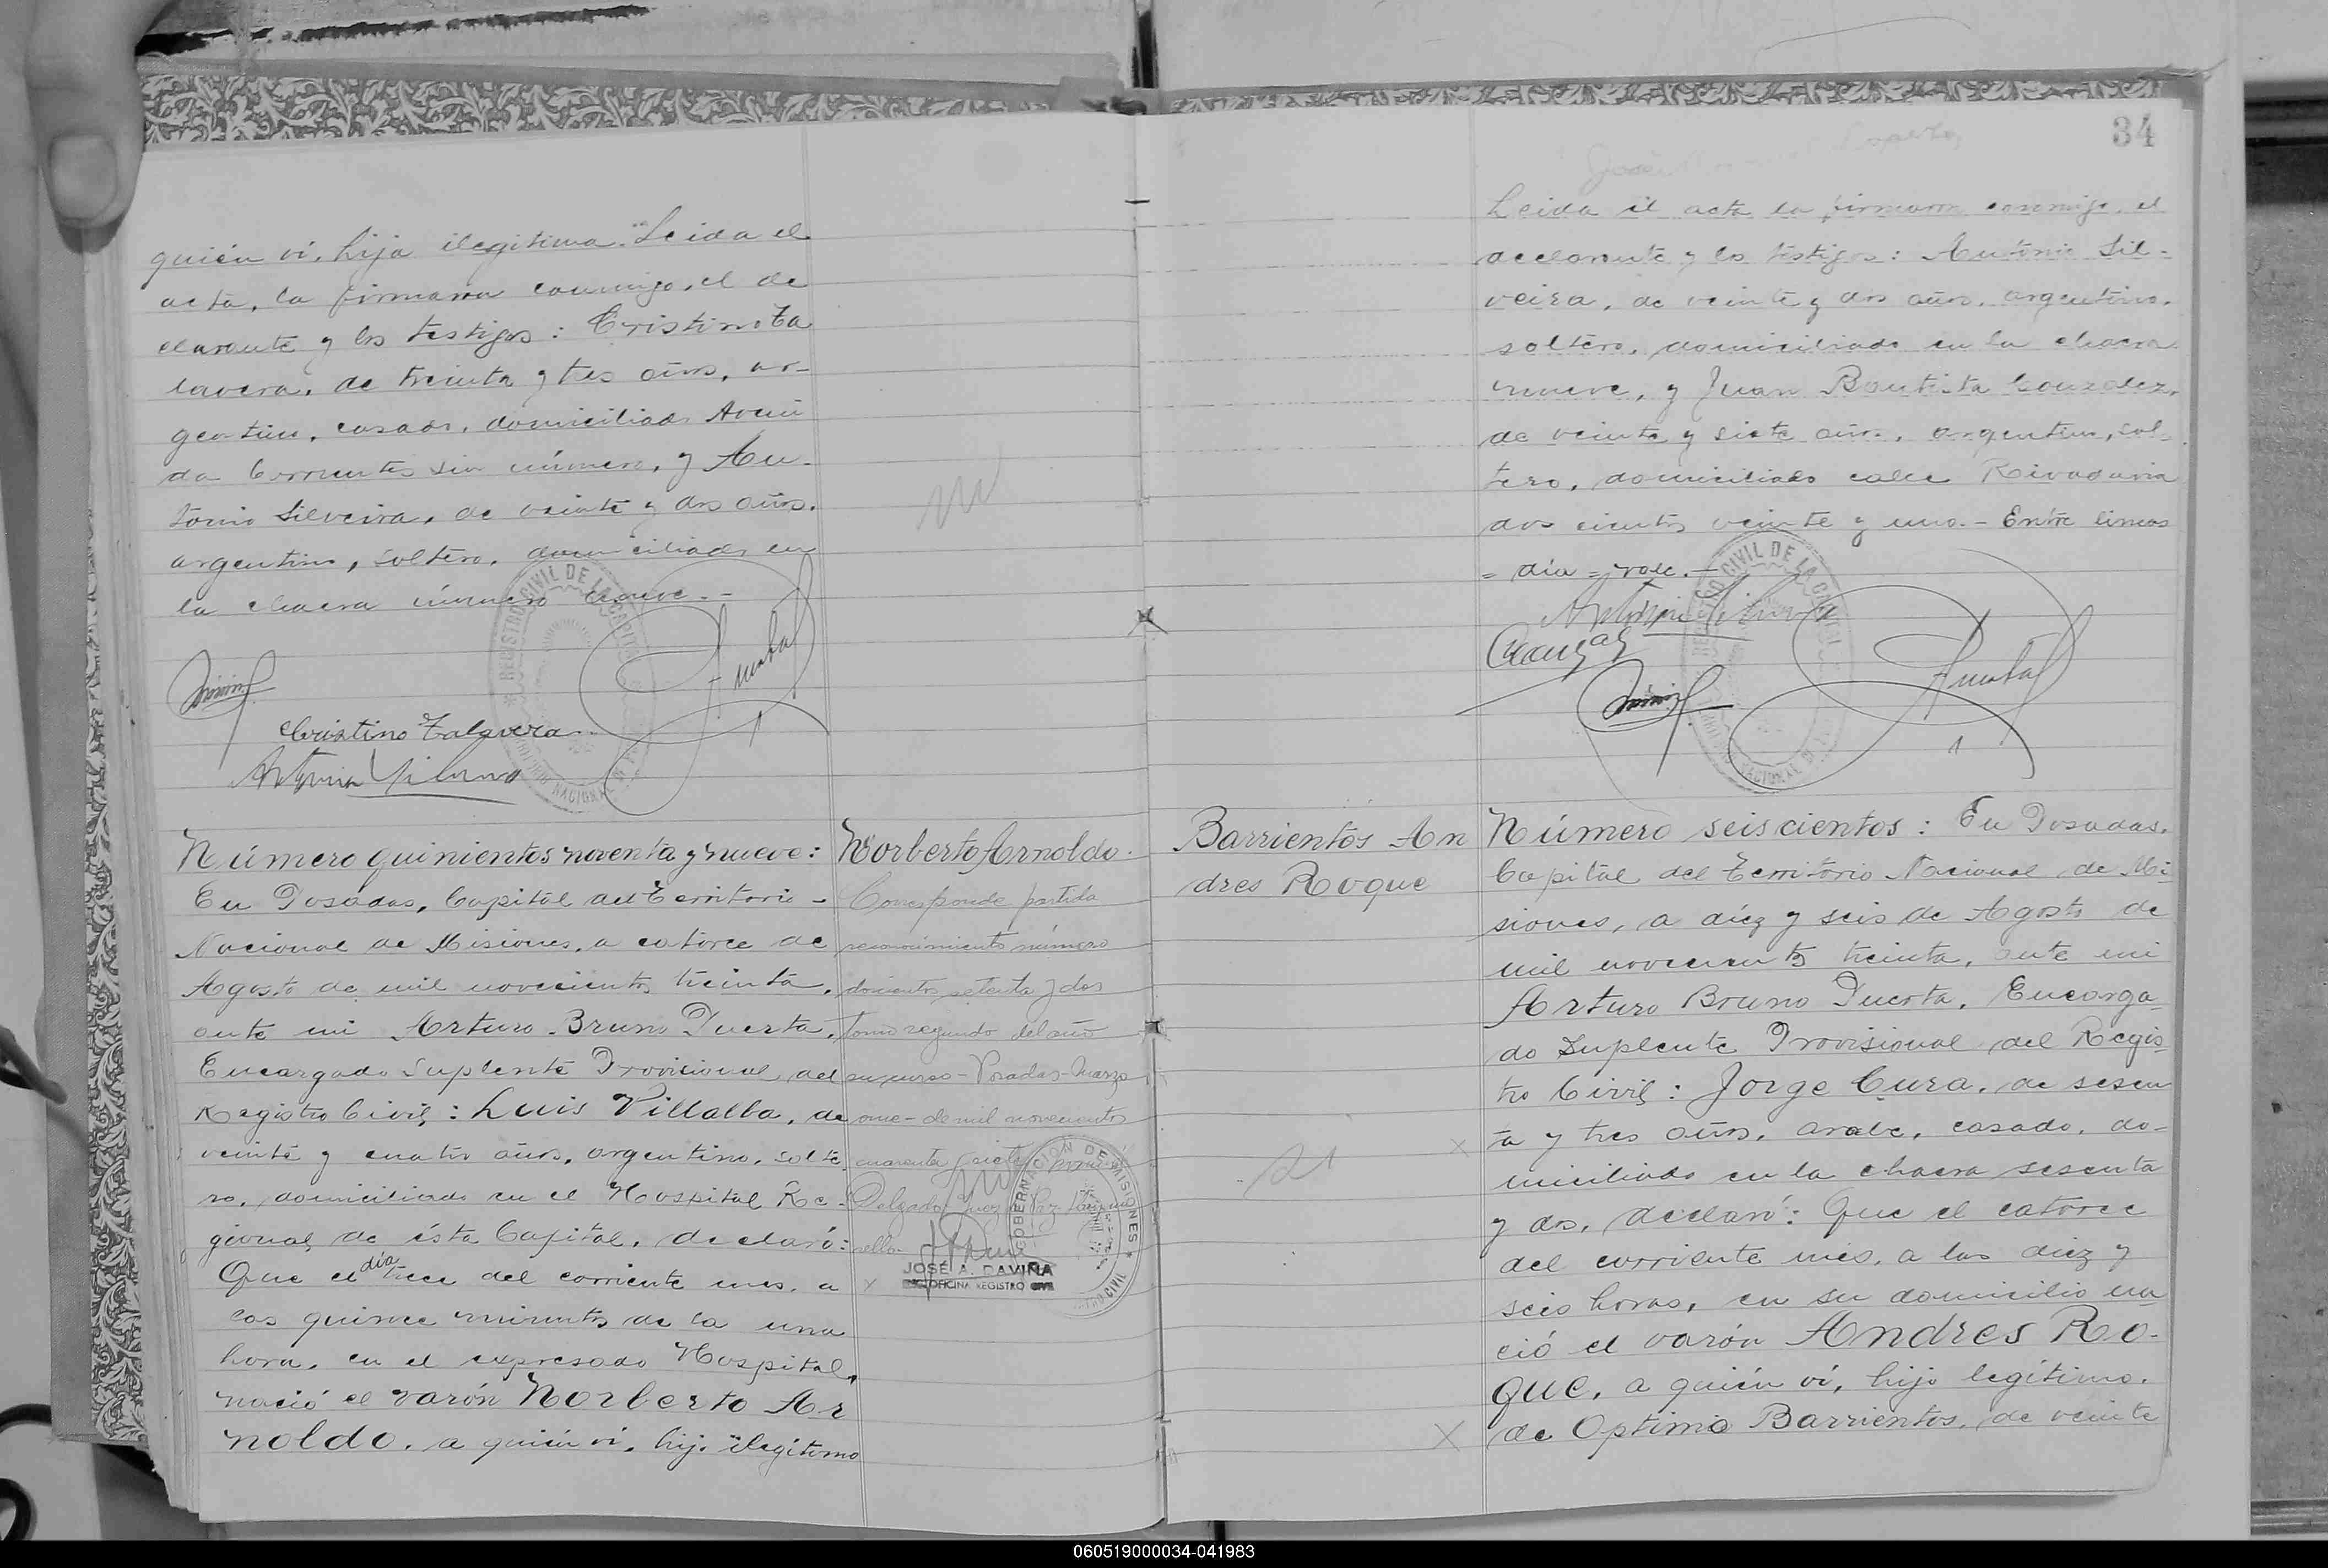 quién ví, hija ilegítima. Leida el
acta, la firmaron conmigo, el de
clarante y los testigos: Cristino Ta
lavera, de treinta y tres años, ar-
gentino, casado, domiciliado Aveni
da Corrientes sin número, y An-
tonio Silveira, de veinte y dos años,
argentino, soltero, domiciliado en
la chacra número nueve.-
REGISTRO CIVIL DE LA CAPITAL
Christino Talavera
Antonio Silveira
Número quinientos noventa y nueve:
En Posadas, Capital del Territorio
Nacional de Misiones, a catorce de
Agosto de mil novecientos treinta,
ante mi Arturo Bruno Puerta,
Encargado Suplente Provisional del
Registro Civil: Luis Villalba, de
veinte y cuatro años, argentino, solte
ro, domiciliado en el Hospital Re-
gional de ésta Capital, declaró:
Que el día trece del corriente mes, a
las quince minutos de la una
hora, en el expresado Hospital,
nació el varón Norberto Ar
noldo, a quién ví, hijo ilegítimo
Norberto Arnoldo.
Corresponde partida
reconocimiento número
doscientos setenta y dos
tomo segundo del año
en curso - Posadas - Marzo
once - de mil novecientos
cuarenta y siete
Delgado Juez Paz
GOBERNACION DE MISIONES
JOSÉ A. DAVIÑA
OFICINA REGISTRO CIVIL
34
Leida el acta la firmaron conmigo, el
declarante y los testigos: Antonio Sil-
veira, de veinte y dos años, argentino,
soltero, domiciliado en la chacra
nueve, y Juan Bautista Gonzalez,
de veinte y siete años, argentino, sol-
tero, domiciliado calle Rivadavia
dos cientos veinte y uno.- Entre lineas
= día = vale.-
Antonio Silveira
REGISTRO CIVIL DE LA CAPITAL
Barrientos An
dres Roque
Número seiscientos: En Posadas,
Capital del Territorio Nacional de Mi-
siones, a diez y seis de Agosto de
mil novecientos treinta, ante mi
Arturo Bruno Puerta, Encarga-
do Suplente Provisional del Regis-
tro Civil: Jorge Cura, de sesen
ta y tres años, arabe, casado, do-
miciliado en la chacra sesenta
y dos, declaró: Que el catorce
del corriente mes, a las diez y
seis horas, en su domicilio na
ció el varón Andres Ro-
que, a quién ví, hijo legítimo,
de Optimio Barrientos, de veinte
060519000034-041983